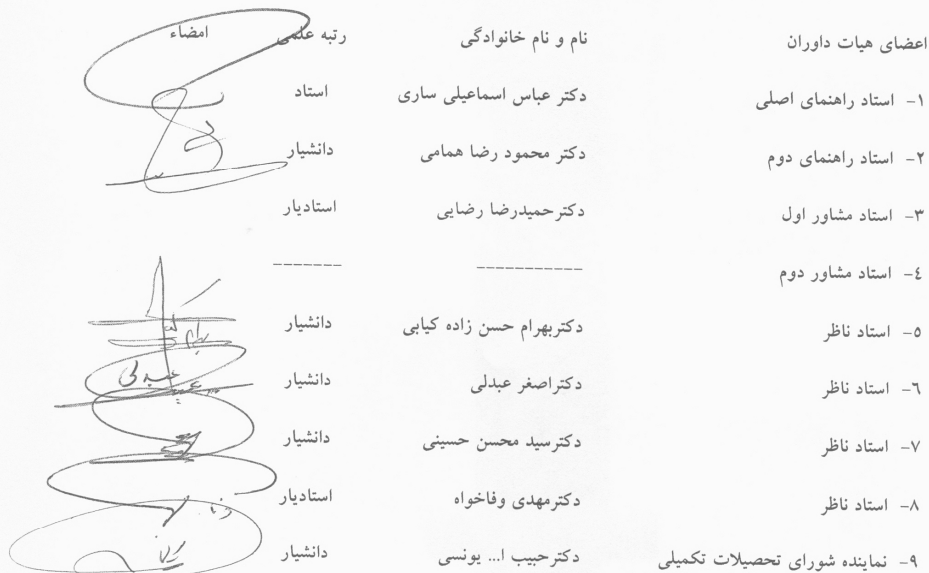 اعضای هیات داوران نام و نام خانوادگی رتبه علمی امضاء
۱- استاد راهنمای اصلی دکتر عباس اسماعیلی ساری استاد
۲- استاد راهنمای دوم دکتر محمود رضا همامی دانشیار
۳- استاد مشاور اول دکترحمیدرضا رضایی استادیار
٤- استاد مشاور دوم ----------- -------
٥- استاد ناظر دکتربهرام حسن زاده کیابی دانشیار
٦- استاد ناظر دکتراصغر عبدلی دانشیار
۷- استاد ناظر دکترسید محسن حسینی دانشیار
۸- استاد ناظر دکترمهدی وفاخواه استادیار
۹- نماینده شورای تحصیلات تکمیلی دکترحبیب ا... یونسی دانشیار